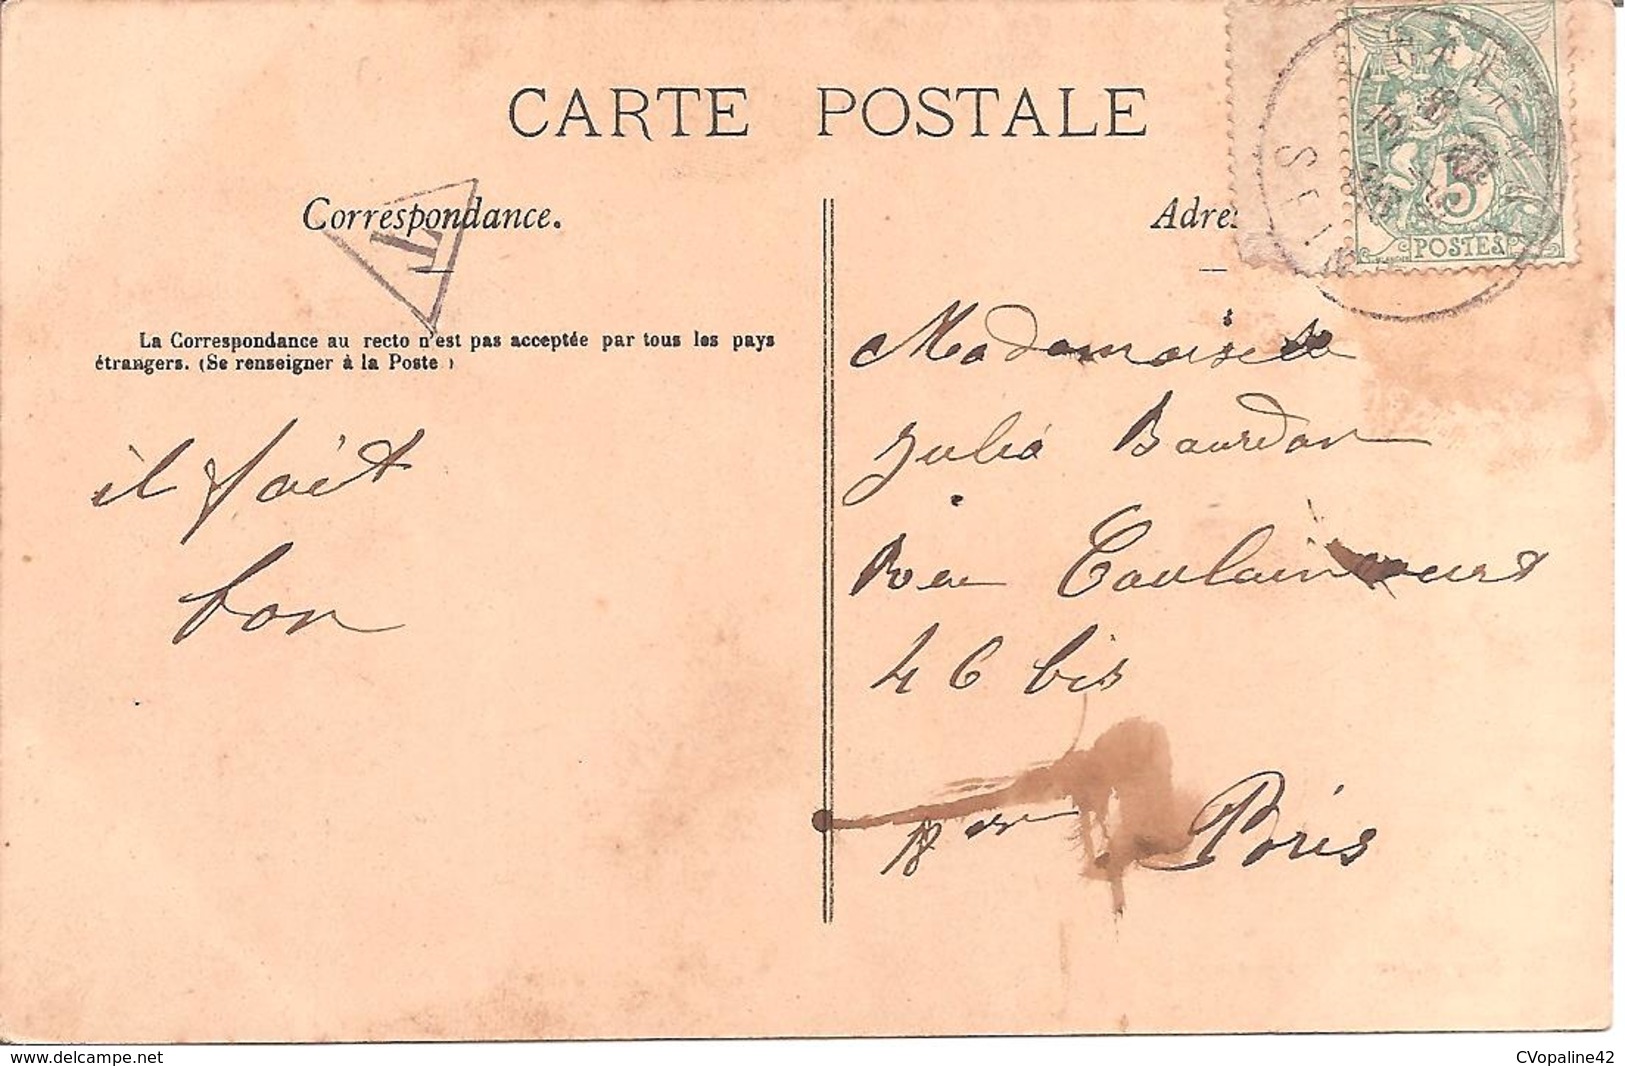 CARTE POSTALE
Correspondance.
T
La Correspondance au recto n'est pas acceptée par tous les pays
étrangers. (Se renseigner à la Poste)
il fait
bon
5
POSTES
Mademoiselle
Julia Bourdon
Rue Caulaincourt
46 bis
Paris
CVopaline42